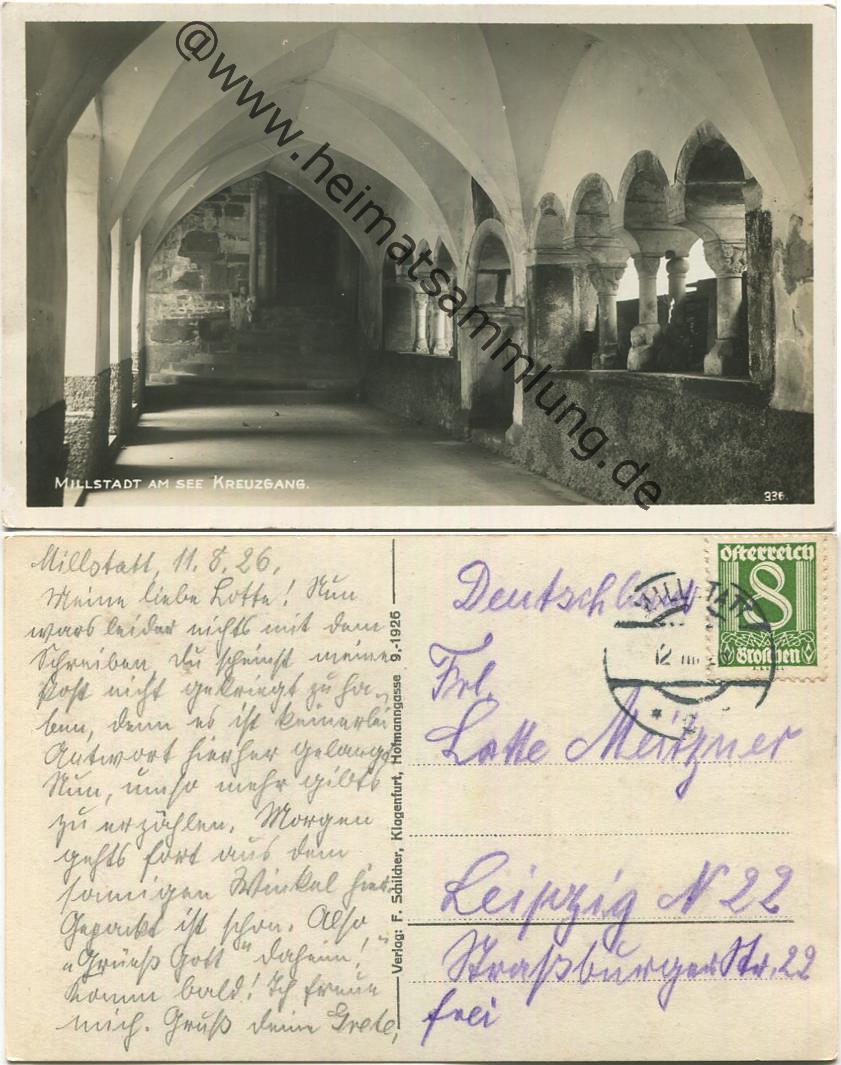 @www.heimatsammlung.de
MILLSTADT AM SEE KREUZGANG.
336.
Millstatt, 11.8.26.
Meine liebe Lotte! Nun
wars leider nichts mit dem
Schreiben, Du scheinst meine
Post nicht gekriegt zu ha-
ben, denn es ist keinerlei
Antwort hierher gelangt.
Nun, umso mehr gibt's
zu erzählen. Morgen
gehts fort aus dem
sonnigen Winkel hier.
Gepackt ist schon. Also
„Grüeß Gott" daheim!
Komm bald! Ich freue
mich. Gruß deine Grete,
Verlag: F. Schilcher, Klagenfurt, Hofmanngasse 9,-1926
Österreich
8
Groschen
MILLSTATT
12 VIII
Deutschland
Frl.
Lotte Meitzner
Leipzig N 22
Straßburger Str. 22
frei